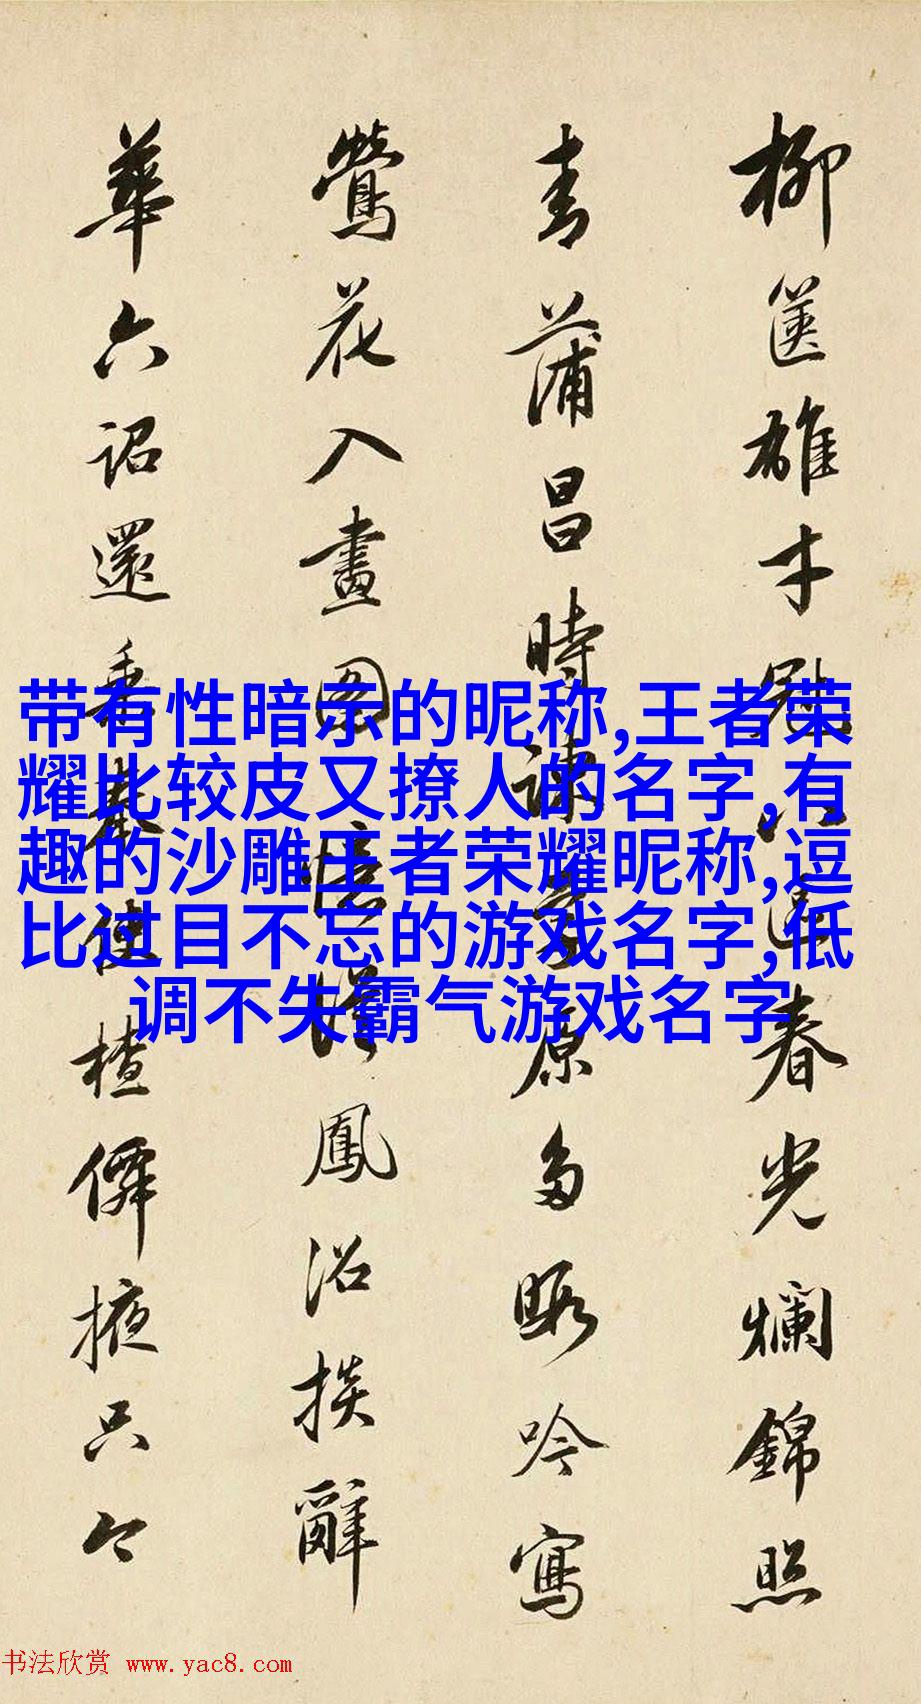 柳篋雄才八區春光爛錦照
青蒲昌時諫原多暇吟寫
鶯花入畫圖鳳沼掞辭
華六詔還乘使楂掖只今
带有性暗示的昵称,王者荣
耀比较皮又撩人的名字,有
趣的沙雕王者荣耀昵称,逗
比过目不忘的游戏名字,低
调不失霸气游戏名字
书法欣赏 www.yac8.com